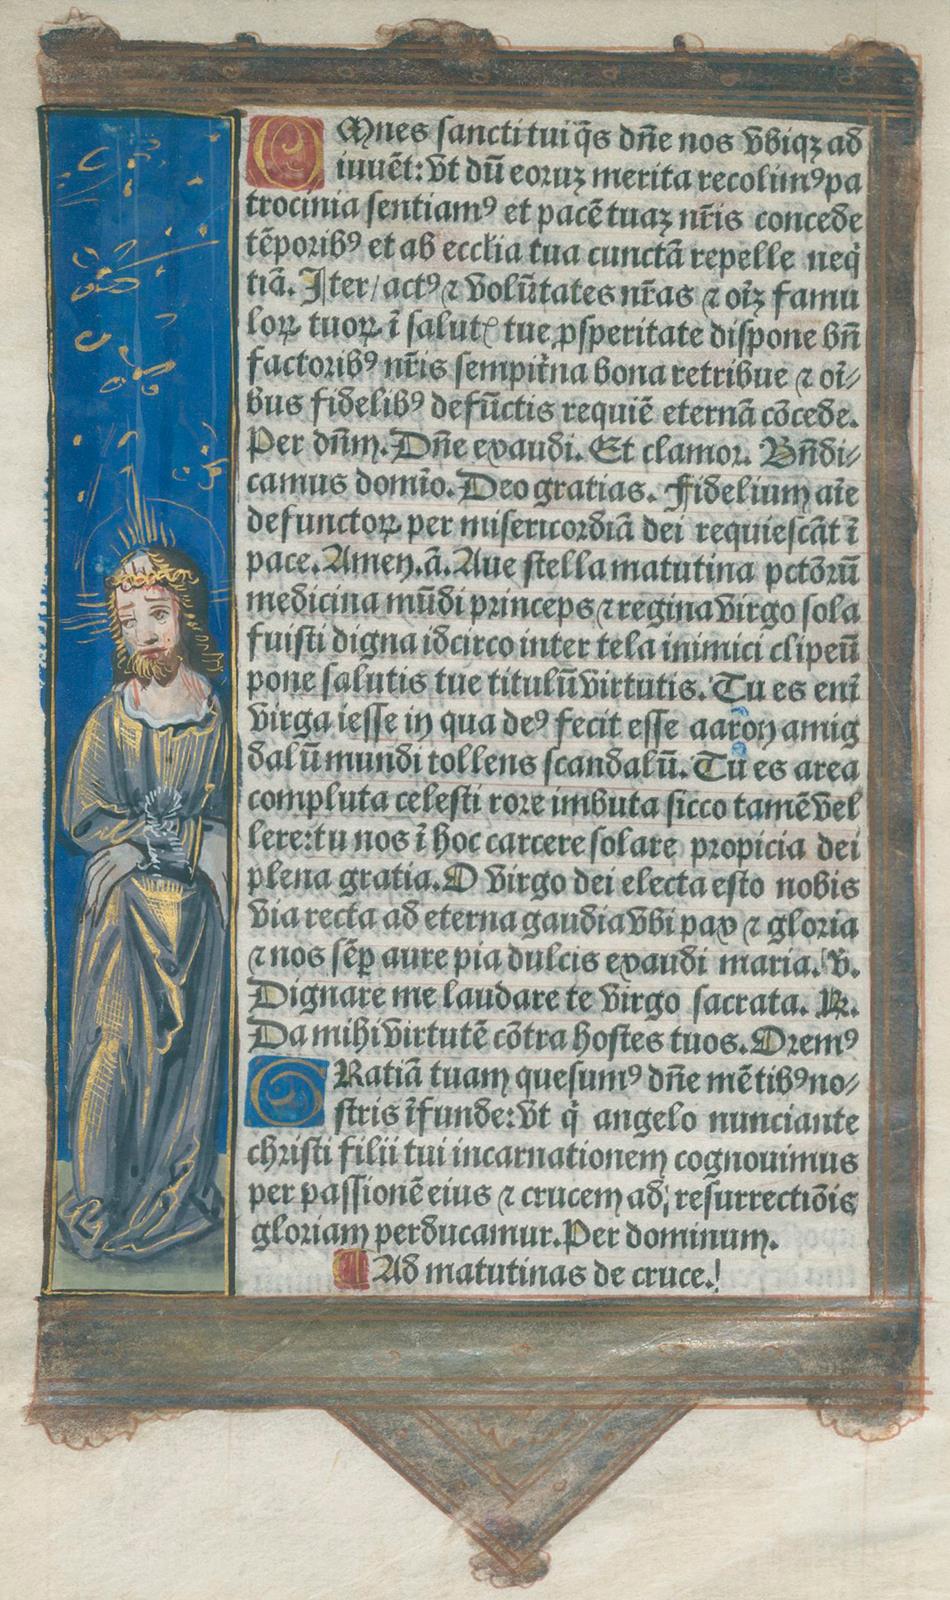 OMnes sancti tui q̄s dn̄e nos vbiqꝫ ad
iuuēt: vt dū eoruꝫ merita recolimꝰ pa
trocinia sentiamꝰ et pacē tuaꝫ nr̄is concede
tēporibꝰ et ab ecclīa tua cunctā repelle neq̇
tiā. Iter/actꝰ ⁊ volūtates nr̄as ⁊ oīꝫ famu
loꝝ tuoꝝ ī salutꝭ tue ꝓsperitate dispone bn̄
factoribꝰ nr̄is sempit̄na bona retribue ⁊ oī⸗
bus fidelibꝰ defūctis requiē eternā cōcede.
Per dn̄m. Dn̄e exaudi. Et clamor. Bn̄di⸗
camus domīo. Deo gratias. Fidelium aīe
defunctoꝝ per misericordiā dei requiescāt ī
pace. Amen. ā. Aue stella matutina pctōrū
medicina mūdi princeps ⁊ regina virgo sola
fuisti digna idcirco inter tela inimici clipeū
pone salutis tue titulū virtutis. Tu es enī
virga iesse in qua deꝰ fecit esse aaron amig
dalū mundi tollens scandalū. Tu es area
compluta celesti rore imbuta sicco tamē vel
lere: tu nos ī hoc carcere solare propicia dei
plena gratia. O virgo dei electa esto nobis
via recta ad eterna gaudia vbi pax ⁊ gloria
⁊ nos sēp aure pia dulcis exaudi maria. V.
Dignare me laudare te virgo sacrata. R.
Da mihi virtutē cōtra hostes tuos. Oremꝰ
GRatiā tuam quesumꝰ dn̄e mētibꝰ no⸗
stris īfunde: vt q̇ angelo nunciante
christi filii tui incarnationem cognouimus
per passionē eius ⁊ crucem ad resurrectiōis
gloriam perducamur. Per dominum.
¶ Ad matutinas de cruce.